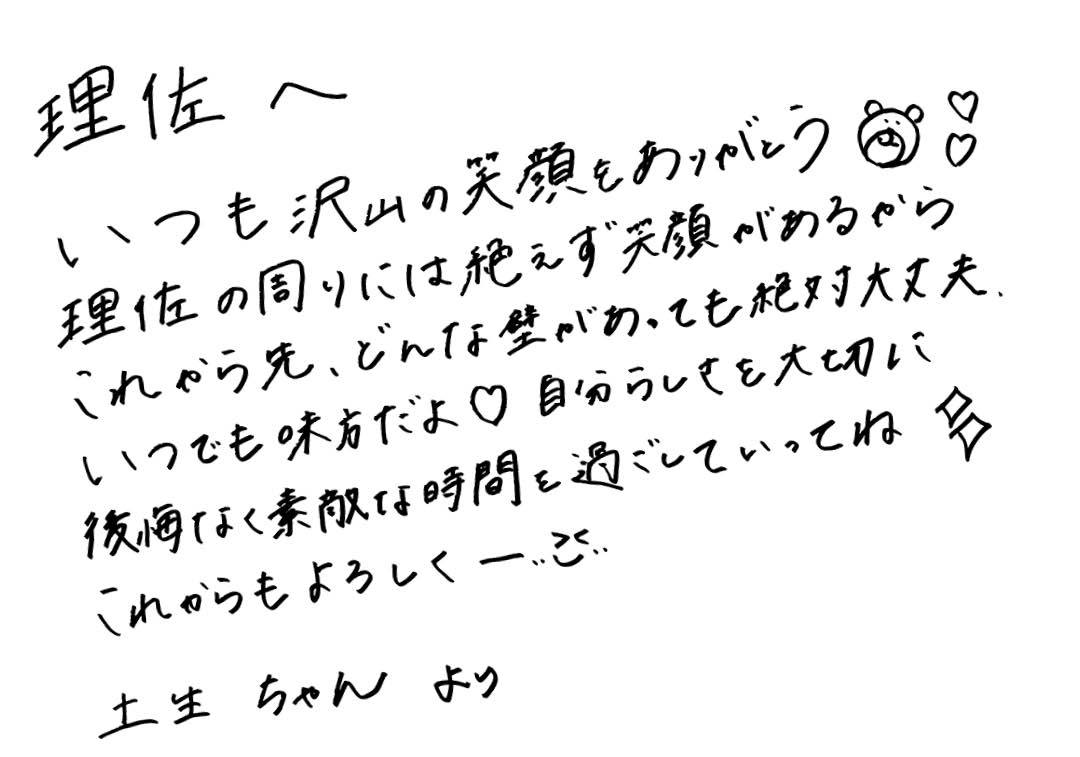 理佐へ
いつも沢山の笑顔をありがとう
理佐の周りには絶えず笑顔があるから
これから先、どんな壁があっても絶対大丈夫、
いつでも味方だよ♡自分らしさを大切に
後悔なく素敵な時間を過ごしていってね
これからもよろしくー
土生ちゃんより